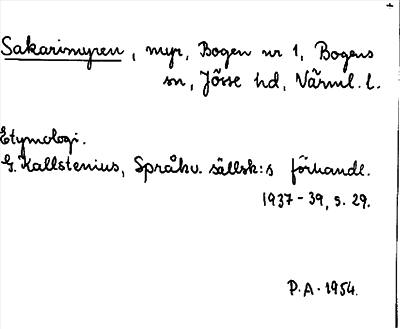 Sakarimyren, myr, Bogen nr 1, Bogens
sn, Jösse hd, Värml. l.
Etymologi.
G. Kallstenius, Språkv. sällsk:s förhandl.
1937-39, s. 29.
P.A. 1954.